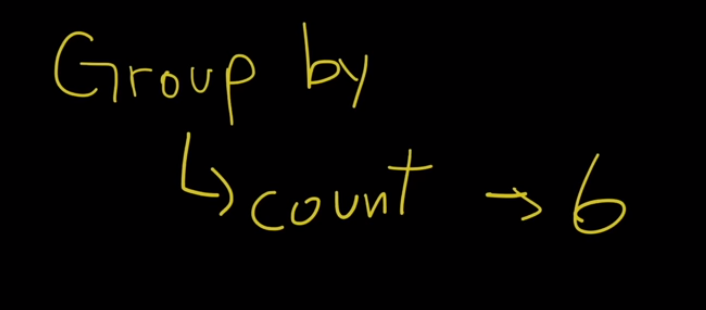 Group by
↳ count → 6